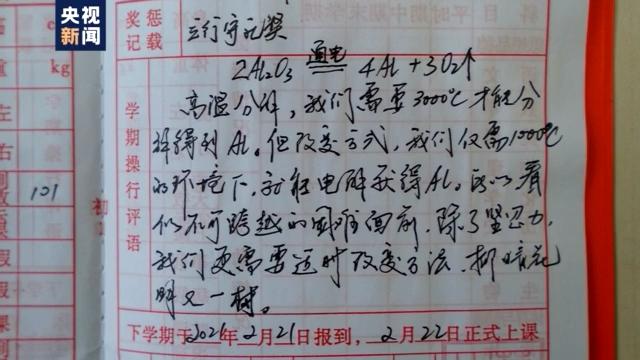 央视新闻
奖惩
记载
立行守礼奖
2Al₂O₃ 通电 4Al+3O₂↑
高温分解，我们需要3000℃才能分
解得到Al。但改变方式，我们仅需1000℃
的环境下，就能电解获得Al。所以看
似不可跨越的困难面前，除了坚忍力，
我们更需要适时改变方法，柳暗花
明又一村。
学期操行评语
下学期于2021年2月21日报到，2月22日正式上课
kg
左
右
101
初